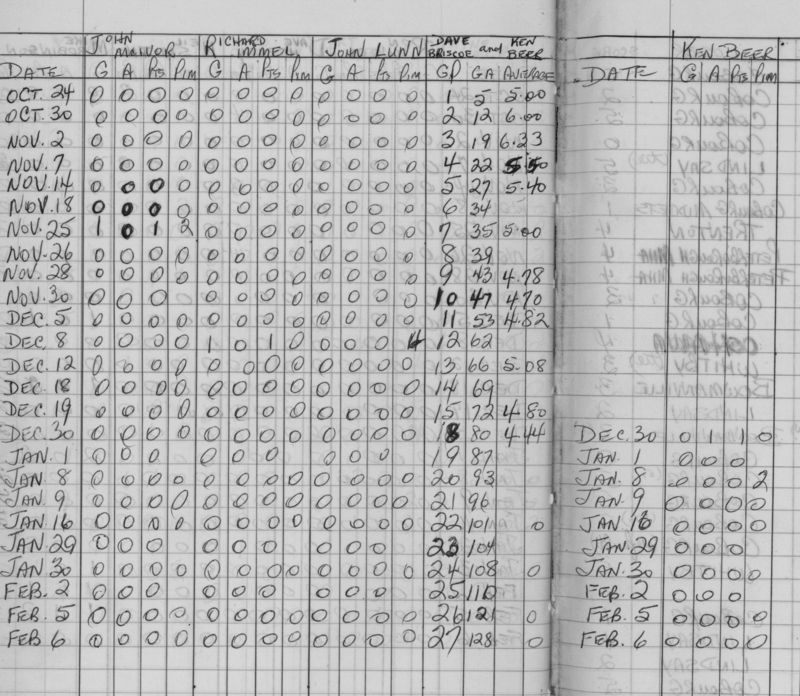 JOHN MCIVOR RICHARD IMMEL JOHN LUNN DAVE BRISCOE and KEN BEER KEN BEER
DATE G A Pts Pim G A Pts Pim G A Pts Pim GP GA AVERAGE DATE G A Pts Pim
OCT. 24 0 0 0 0 0 0 0 0 0 0 0 0 1 5 5.00
OCT. 30 0 0 0 0 0 0 0 0 0 0 0 0 2 12 6.00
NOV. 2 0 0 0 0 0 0 0 0 0 0 0 0 3 19 6.33
NOV. 7 0 0 0 0 0 0 0 0 0 0 0 0 4 22 5.50
NOV. 14 0 0 0 0 0 0 0 0 0 0 0 0 5 27 5.40
NOV. 18 0 0 0 0 0 0 0 0 0 0 0 0 6 34
NOV. 25 1 0 1 2 0 0 0 0 0 0 0 0 7 35 5.00
NOV. 26 0 0 0 0 0 0 0 0 0 0 0 0 8 39
NOV. 28 0 0 0 0 0 0 0 0 0 0 0 0 9 43 4.78
NOV. 30 0 0 0 0 0 0 0 0 0 0 0 10 47 4.70
DEC. 5 0 0 0 0 0 0 0 0 0 0 0 0 11 53 4.82
DEC. 8 0 0 0 0 1 0 1 0 0 0 0 4 12 62
DEC. 12 0 0 0 0 0 0 0 0 0 0 0 0 13 66 5.08
DEC. 18 0 0 0 0 0 0 0 0 0 0 0 0 14 69
DEC. 19 0 0 0 0 0 0 0 0 0 0 0 0 15 72 4.80
DEC. 30 0 0 0 0 0 0 0 0 0 0 0 0 18 80 4.44 DEC. 30 0 1 1 0
JAN. 1 0 0 0 0 0 0 0 0 0 19 87 JAN. 1 0 0 0
JAN. 8 0 0 0 0 0 0 0 0 0 0 0 0 20 93 JAN. 8 0 0 0 2
JAN. 9 0 0 0 0 0 0 0 0 0 0 0 0 21 96 JAN. 9 0 0 0 0
JAN 16 0 0 0 0 0 0 0 0 0 0 0 0 22 101 0 JAN 16 0 0 0 0
JAN 29 0 0 0 0 0 0 0 0 0 23 104 JAN. 29 0 0 0
JAN 30 0 0 0 0 0 0 0 0 0 0 0 0 24 108 0 JAN. 30 0 0 0 0
FEB. 2 0 0 0 0 0 0 0 0 0 25 110 FEB. 2 0 0 0
FEB. 5 0 0 0 0 0 0 0 0 0 0 0 0 26 121 0 FEB. 5 0 0 0 0
FEB. 6 0 0 0 0 0 0 0 0 0 0 0 0 27 128 0 FEB. 6 0 0 0 0